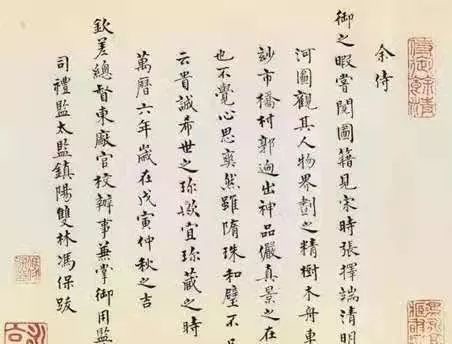 余侍
御之暇嘗閱圖籍見宋時張擇端清明
河圖觀其人物界劃之精樹木舟車
妙市橋村郭迥出神品儼真景之在
也不覺心思爽然雖隋珠和璧不
云貴誠希世之珍歟宜珍藏之時
萬曆六年歲在戊寅仲秋之吉
欽差總督東廠官校辦事兼掌御用監
司禮監太監鎮陽雙林馮保跋